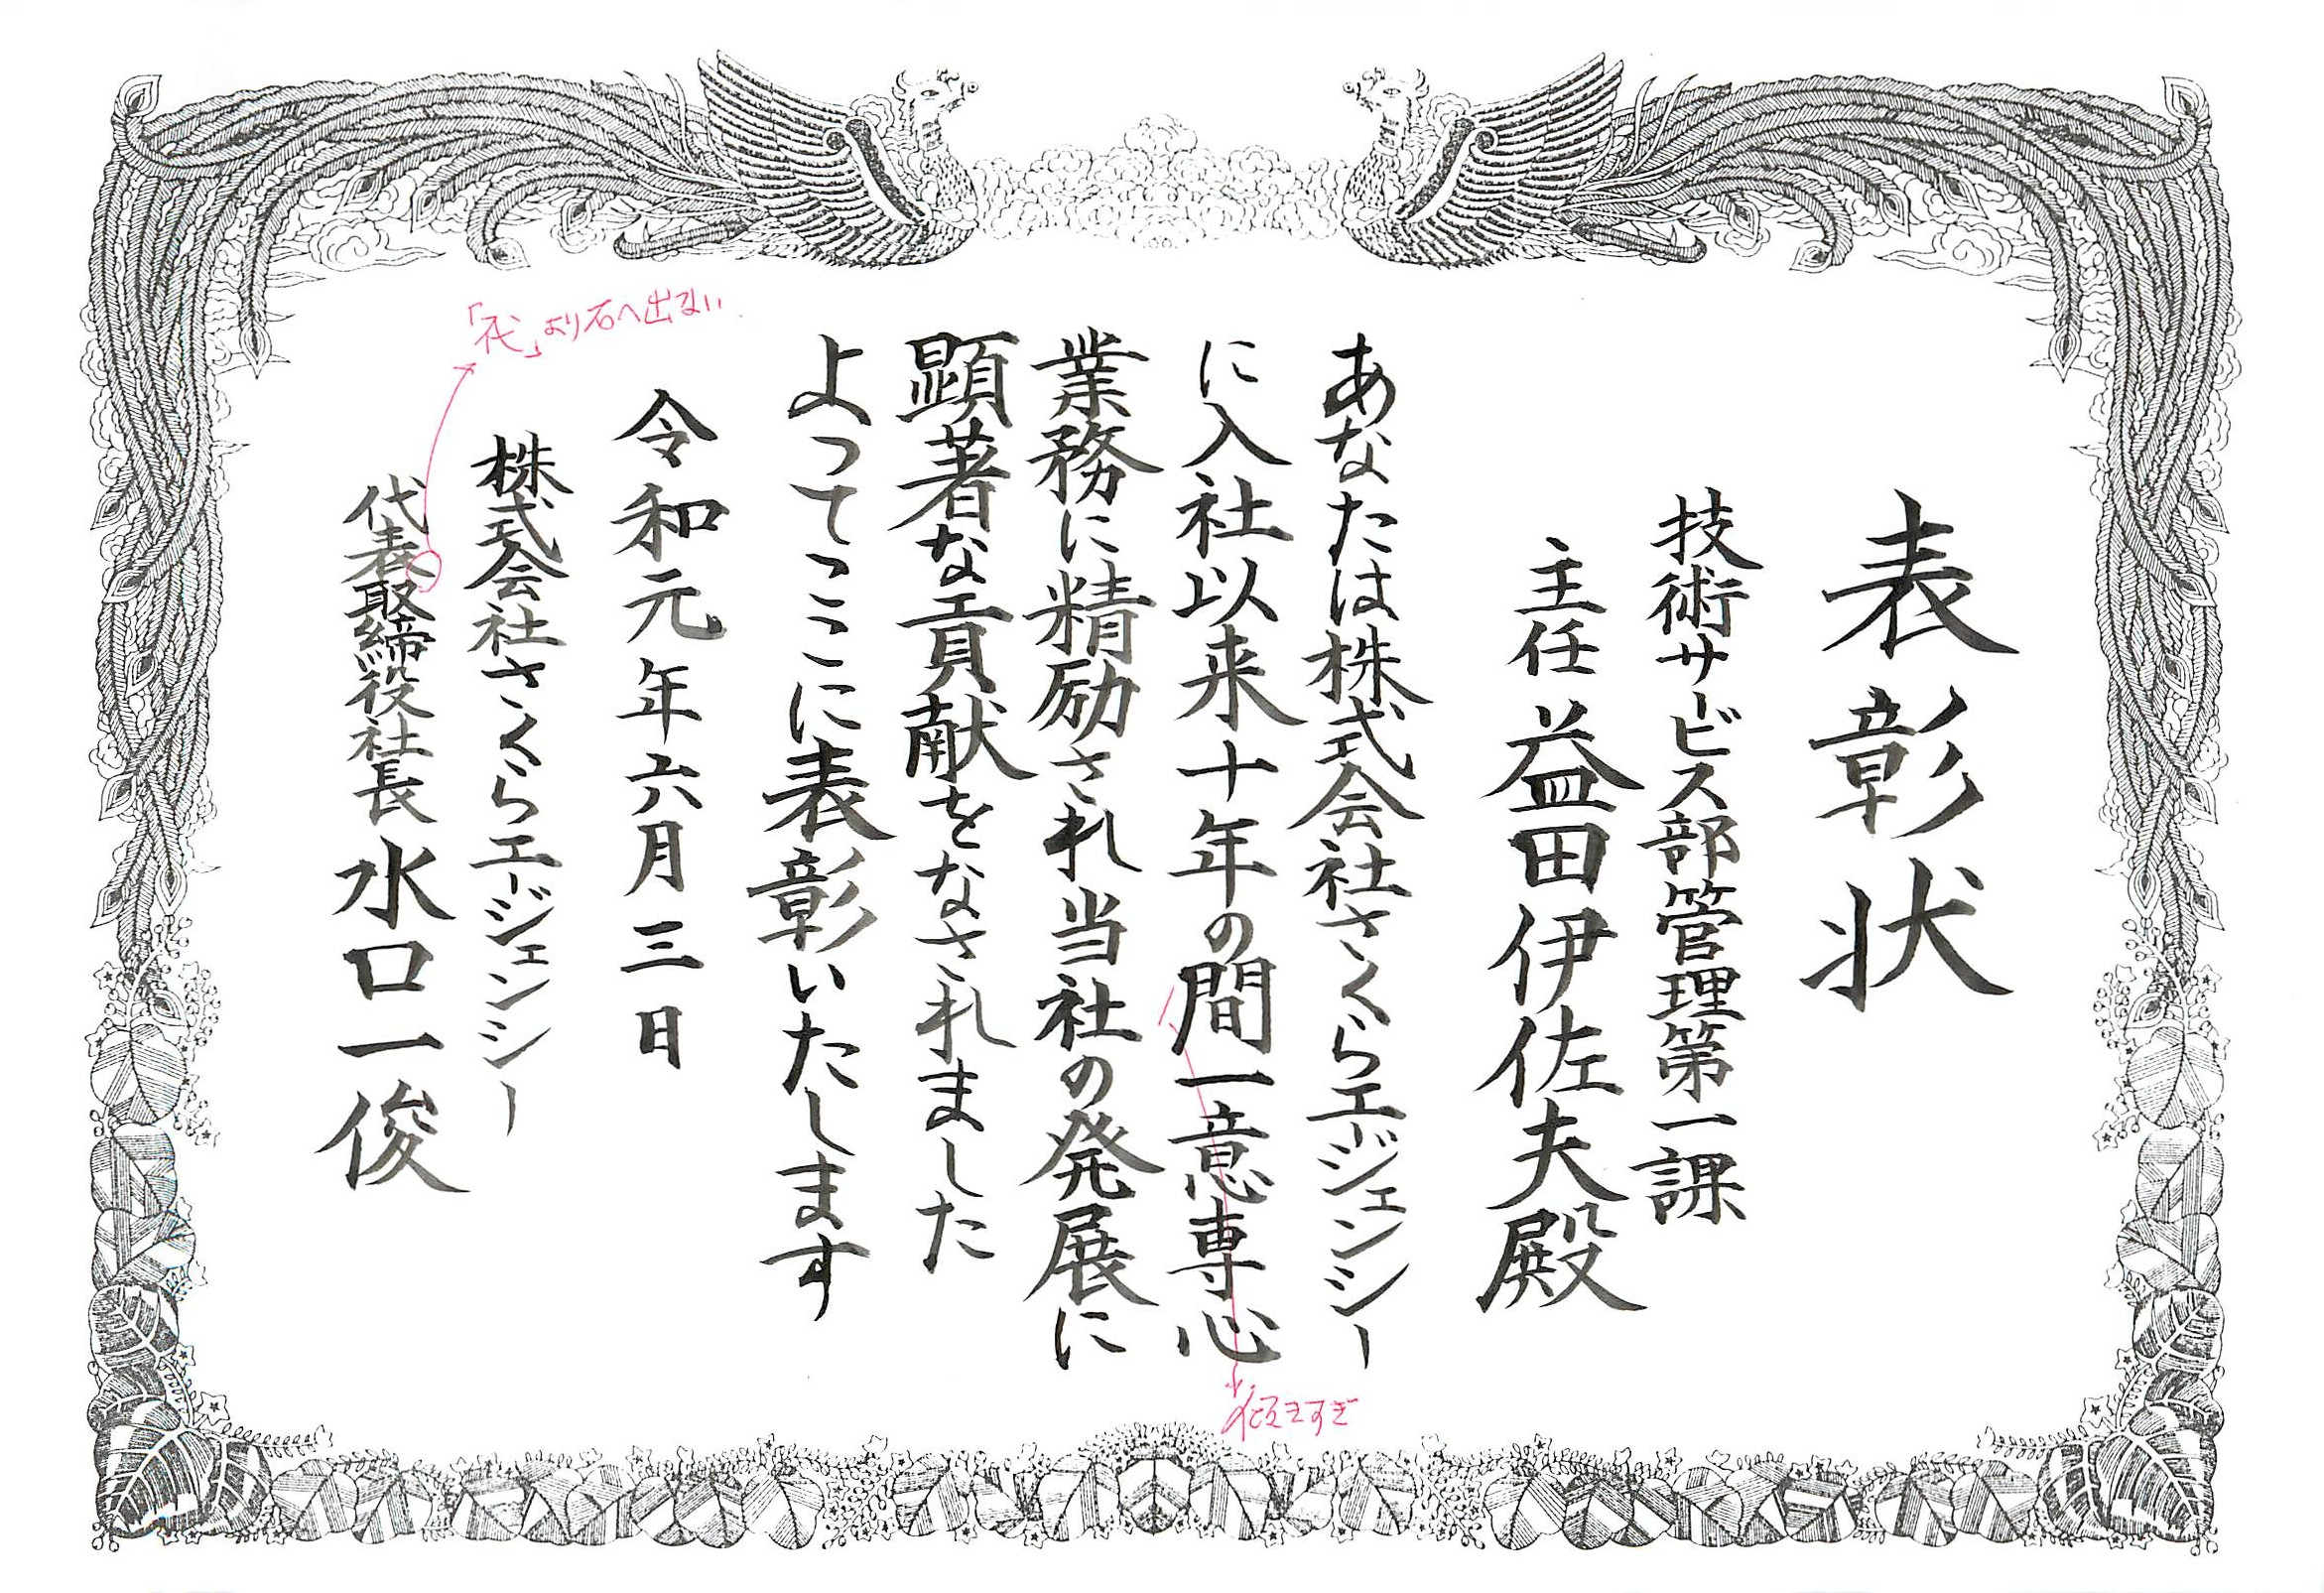 表彰状
技術サービス部管理第一課
主任 益田伊佐夫殿
あなたは株式会社さくらエージェンシー
に入社以来十年の間一意専心
業務に精励され当社の発展に
顕著な貢献をなされました
よってここに表彰いたします
令和元年六月三日
株式会社さくらエージェンシー
代表取締役社長 水口一俊
「代」より右へ出ない
すぎ